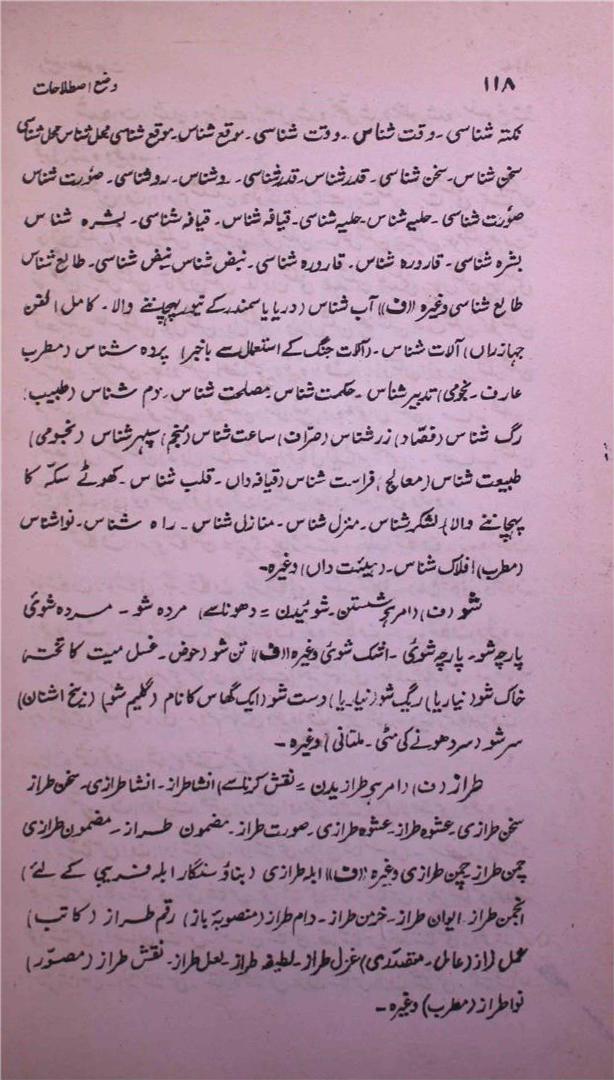 ۱۱۸ وضع اصطلاحات
نکتہ شناسی۔ وقت شناس۔ وقت شناسی۔ موقع شناس۔ موقع شناسی محل شناس محل شناسی
سخن شناس۔ سخن شناسی۔ قدر شناس۔ قدر شناسی۔ روشناس۔ روشناسی۔ صورت شناس
صورت شناسی۔ حلیہ شناس۔ حلیہ شناسی۔ قیافہ شناس۔ قیافہ شناسی۔ بشرہ شناس
بشرہ شناسی۔ قارورہ شناس۔ قارورہ شناسی۔ نبض شناس نبض شناسی۔ طالع شناس
طالع شناسی وغیرہ ((ف)) آب شناس (دریا یا سمندر کے تیور پہچاننے والا۔ کامل الفن
جہازراں) آلات شناس۔ (آلات جنگ کے استعمال سے باخبر) پردہ شناس (مطرب
عارف۔ نجومی) تدبیر شناس۔ حکمت شناس مصلحت شناس۔ دم شناس (طبیب)
رگ شناس (فصّاد) زر شناس (صرّاف) ساعت شناس (منجم) سپہر شناس (نجومی)
طبیعت شناس (معالج) فراست شناس (قیافہ داں۔ قلب شناس۔ کھوٹے سکّہ کا
پہچاننے والا) لشکر شناس۔ منزل شناس۔ منازل شناس۔ راہ شناس۔ نوا شناس
(مطرب) افلاک شناس۔ (ہیئت داں) وغیرہ۔
شو (ف) (امر ہے شستن۔ شوئیدن = دھونا سے) مردہ شو۔ مردہ شوئی
پارچہ شو۔ پارچہ شوئی۔ اشک شوئی وغیرہ ((ف)) تن شو (حوض۔ غسل میت کا تختہ
خاک شو (نیاریا) ریگ شو (نیاریا) دست شو (ایک گھاس کا نام) (گلیم شو) (زیخ اشنان)
سر شو (سر دھونے کی مٹی۔ ملتانی) وغیرہ۔
طراز (ف) (امر ہے طرازیدن = نقش کرنا سے) انشا طراز۔ انشا طرازی۔ سخن طراز
سخن طرازی۔ عشوہ طراز۔ عشوہ طرازی۔ صورت طراز۔ مضمون طراز۔ مضمون طرازی
چمن طراز۔ چمن طرازی وغیرہ ((ف)) ابلہ طرازی (بناؤ سنگار ابلہ فریبی کے لئے)
انجمن طراز۔ ایوان طراز۔ خرمن طراز۔ دام طراز (منصوبہ باز) رقم طراز (کاتب)
عمل طراز (عامل۔ متصدّی) غزل طراز۔ لطیفہ طراز۔ لعل طراز۔ نقش طراز (مصوّر)
نوا طراز (مطرب) وغیرہ۔